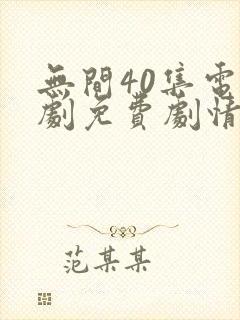 無間40集電
劇免費劇情
范某某